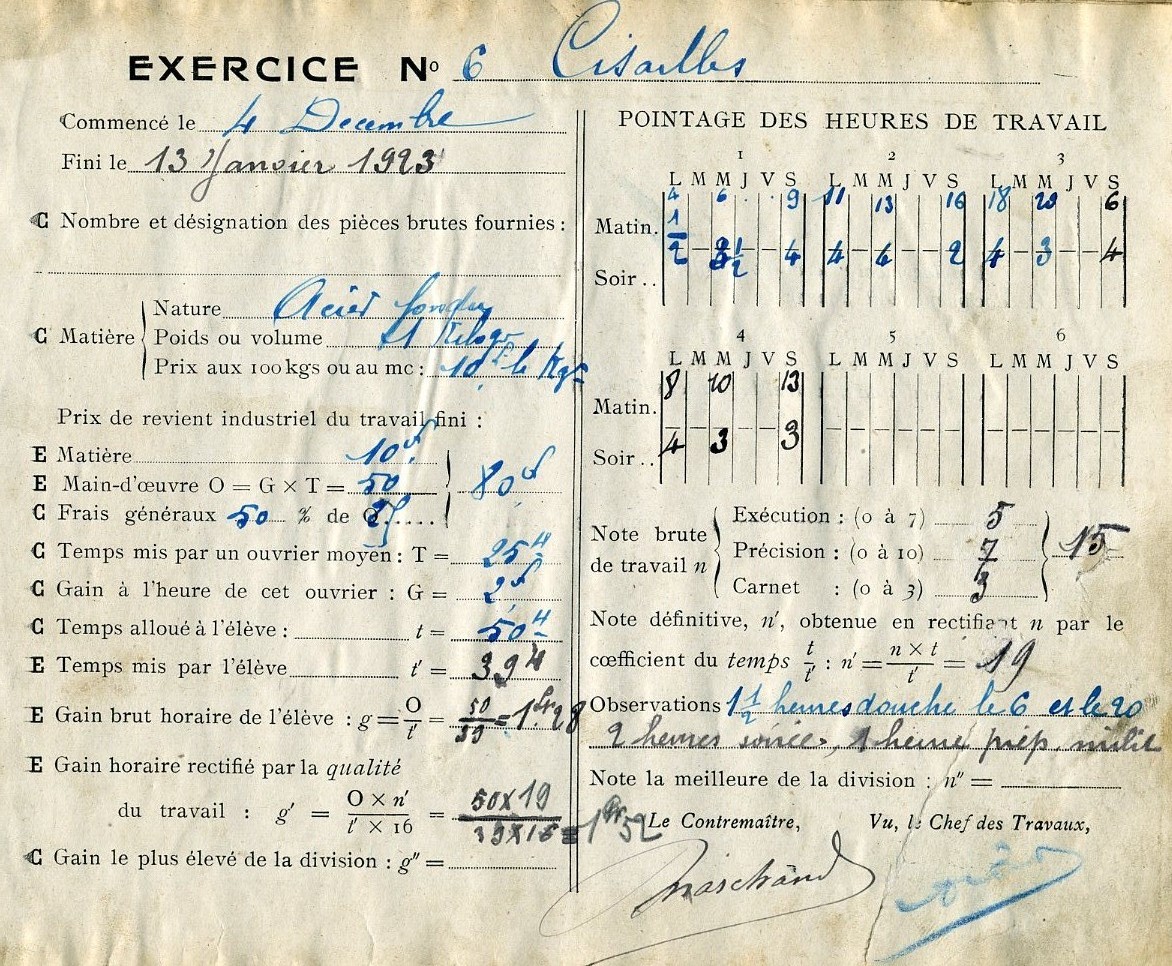 EXERCICE No 6 Cisailles
Commencé le 4 Decembre
Fini le 13 Janvier 1923
C Nombre et désignation des pièces brutes fournies :
C Matière
Nature Acier fondu
Poids ou volume 1 Kilogr
Prix aux 100 kgs ou au mc : 10f le Kgr
Prix de revient industriel du travail fini :
E Matière 10f
E Main-d'œuvre O = G × T = 50
80f
C Frais généraux 50 % de O
C Temps mis par un ouvrier moyen : T = 25H
C Gain à l'heure de cet ouvrier : G = 2f
C Temps alloué à l'élève : t = 50H
E Temps mis par l'élève t' = 39H
E Gain brut horaire de l'élève : g = O/t' = 50/39 = 1fr28
E Gain horaire rectifié par la qualité
du travail : g' = O × n'/t' × 16 = 50×19/39×16 = 1fr52
C Gain le plus élevé de la division : g'' =
POINTAGE DES HEURES DE TRAVAIL
1 2 3
L M M J V S L M M J V S L M M J V S
4 6 9 11 13 16 18 20 6
Matin.
Soir ..
4 4 6 2 4 3 4
4 5 6
L M M J V S L M M J V S L M M J V S
8 10 13
Matin.
4 3 3
Soir ..
Note brute de travail n
Exécution : (0 à 7) 5
Précision : (0 à 10) 7
Carnet : (0 à 3) 3
15
Note définitive, n', obtenue en rectifiant n par le
cœfficient du temps t/t' : n' = n × t/t' = 19
Observations 1 1/2 heures douche le 6 et le 20
2 heures soirée, 1 heure prép. milit
Note la meilleure de la division : n'' =
Le Contremaître, Vu, le Chef des Travaux,
Marchand